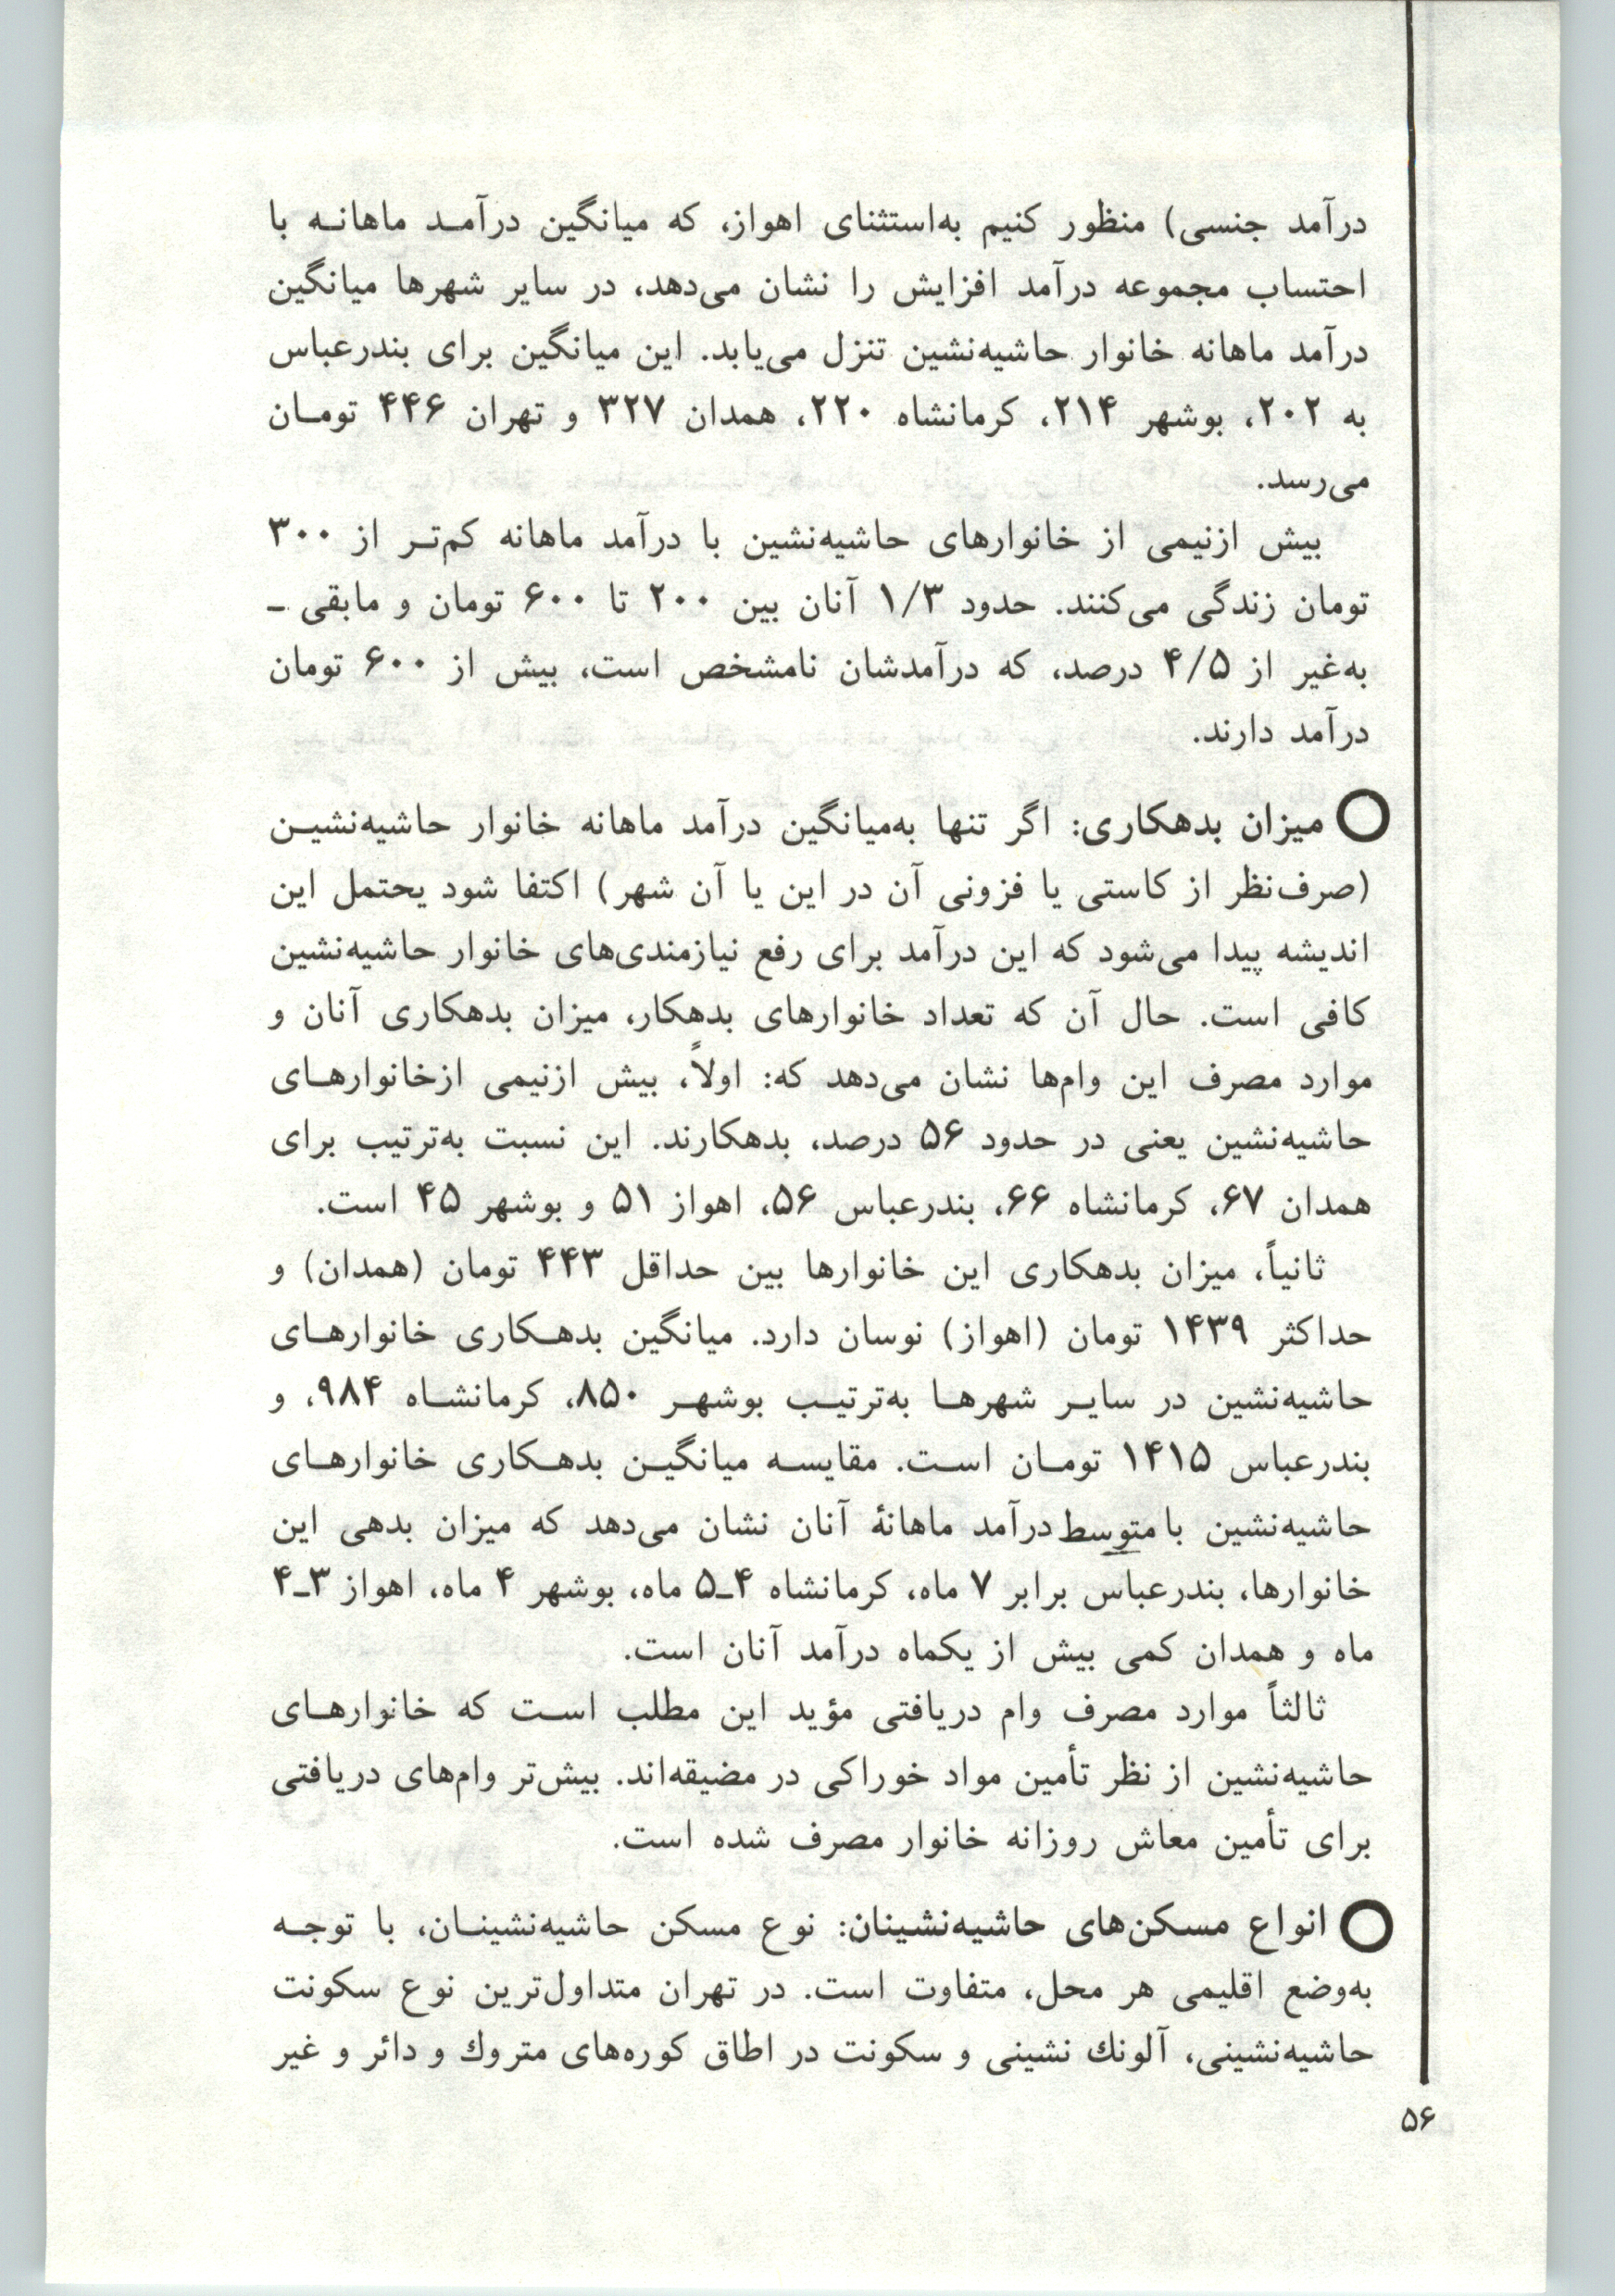 درآمد جنسی) منظور کنیم به‌استثنای اهواز، که میانگین درآمـد ماهانـه با
احتساب مجموعه درآمد افزایش را نشان می‌دهد، در سایر شهرها میانگین
درآمد ماهانه خانوار حاشیه‌نشین تنزل می‌یابد. این میانگین برای بندرعباس
به ۲۰۲، بوشهر ۲۱۴، کرمانشاه ۲۲۰، همدان ۳۲۷ و تهران ۴۴۶ تومـان
می‌رسد.
بیش ازنیمی از خانوارهای حاشیه‌نشین با درآمد ماهانه کم‌تـر از ۳۰۰
تومان زندگی می‌کنند. حدود ۱/۳ آنان بین ۲۰۰ تا ۶۰۰ تومان و مابقی ـ
به‌غیر از ۴/۵ درصد، که درآمدشان نامشخص است، بیش از ۶۰۰ تومان
درآمد دارند.
○ میزان بدهکاری: اگر تنها به‌میانگین درآمد ماهانه خانوار حاشیه‌نشیـن
(صرف‌نظر از کاستی یا فزونی آن در این یا آن شهر) اکتفا شود یحتمل این
اندیشه پیدا می‌شود که این درآمد برای رفع نیازمندی‌های خانوار حاشیه‌نشین
کافی است. حال آن که تعداد خانوارهای بدهکار، میزان بدهکاری آنان و
موارد مصرف این وام‌ها نشان می‌دهد که: اولاً، بیش ازنیمی ازخانوارهـای
حاشیه‌نشین یعنی در حدود ۵۶ درصد، بدهکارند. این نسبت به‌ترتیب برای
همدان ۶۷، کرمانشاه ۶۶، بندرعباس ۵۶، اهواز ۵۱ و بوشهر ۴۵ است.
ثانیاً، میزان بدهکاری این خانوارها بین حداقل ۴۴۳ تومان (همدان) و
حداکثر ۱۴۳۹ تومان (اهواز) نوسان دارد. میانگین بدهـکاری خانوارهـای
حاشیه‌نشین در سایـر شهرهـا به‌ترتیـب بوشهـر ۸۵۰، کرمانشـاه ۹۸۴، و
بندرعباس ۱۴۱۵ تومـان اسـت. مقایسـه میانگیـن بدهـکاری خانوارهـای
حاشیه‌نشین با متوسط درآمد ماهانهٔ آنان نشان می‌دهد که میزان بدهی این
خانوارها، بندرعباس برابر ۷ ماه، کرمانشاه ۴ـ۵ ماه، بوشهر ۴ ماه، اهواز ۳ـ۴
ماه و همدان کمی بیش از یکماه درآمد آنان است.
ثالثاً موارد مصرف وام دریافتی مؤید این مطلب اسـت که خانوارهـای
حاشیه‌نشین از نظر تأمین مواد خوراکی در مضیقه‌اند. بیش‌تر وام‌های دریافتی
برای تأمین معاش روزانه خانوار مصرف شده است.
○ انواع مسکن‌های حاشیه‌نشینان: نوع مسکن حاشیه‌نشینـان، با توجـه
به‌وضع اقلیمی هر محل، متفاوت است. در تهران متداول‌ترین نوع سکونت
حاشیه‌نشینی، آلونك نشینی و سکونت در اطاق کوره‌های متروك و دائر و غیر
۵۶